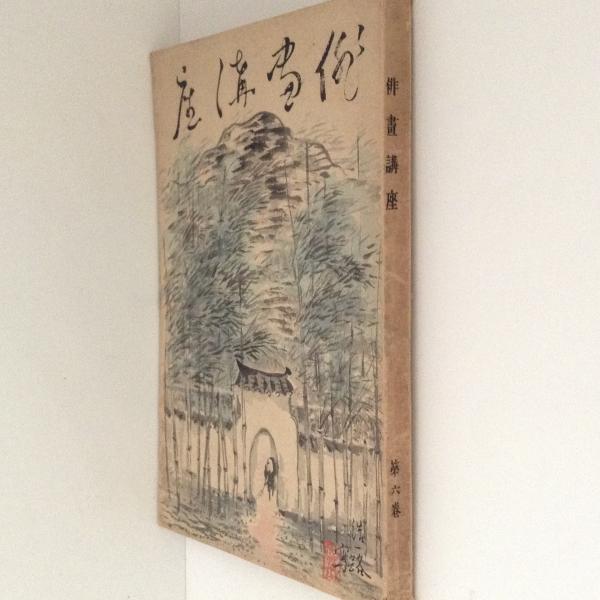 俳画講座
俳畫講座
第六卷